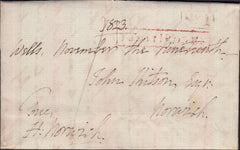 1823
Wells. November the nineteenth
John Kitson Esqr.
Norwich.
H. Norwich.